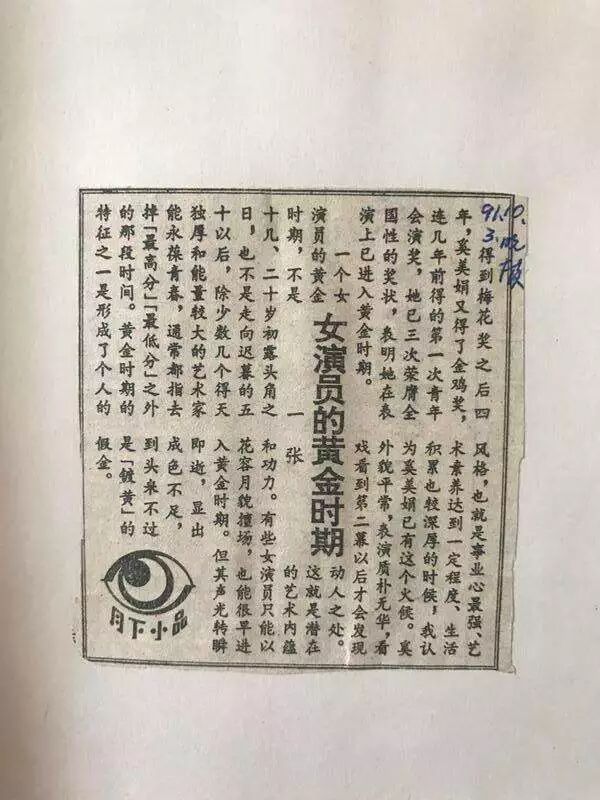 91.10.
3.晚
女演员的黄金时期
一张
得到梅花奖之后四
年，奚美娟又得了金鸡奖，
连几年前得的第一次青年
会演奖，她已三次荣膺全
国性的奖状，表明她在表
演上已进入黄金时期。
一个女
演员的黄金
时期，不是
十几、二十岁初露头角之
日，也不是走向迟暮的五
十以后，除少数几个得天
独厚和能量较大的艺术家
能永葆青春，通常都指去
掉「最高分」「最低分」之外
的那段时间。黄金时期的
特征之一是形成了个人的
风格，也就是事业心最强、艺
术素养达到一定程度、生活
积累也较深厚的时候，我认
为奚美娟已有这个火候。奚
外貌平常，表演质朴无华，看
戏看到第二幕以后才会发现
动人之处。
这就是潜在
的艺术内蕴
和功力。有些女演员只能以
花容月貌擅场，也能很早进
入黄金时期。但其声光转瞬
即逝，显出
成色不足，
到头来不过
是「镀黄」的
假金。
月下小品